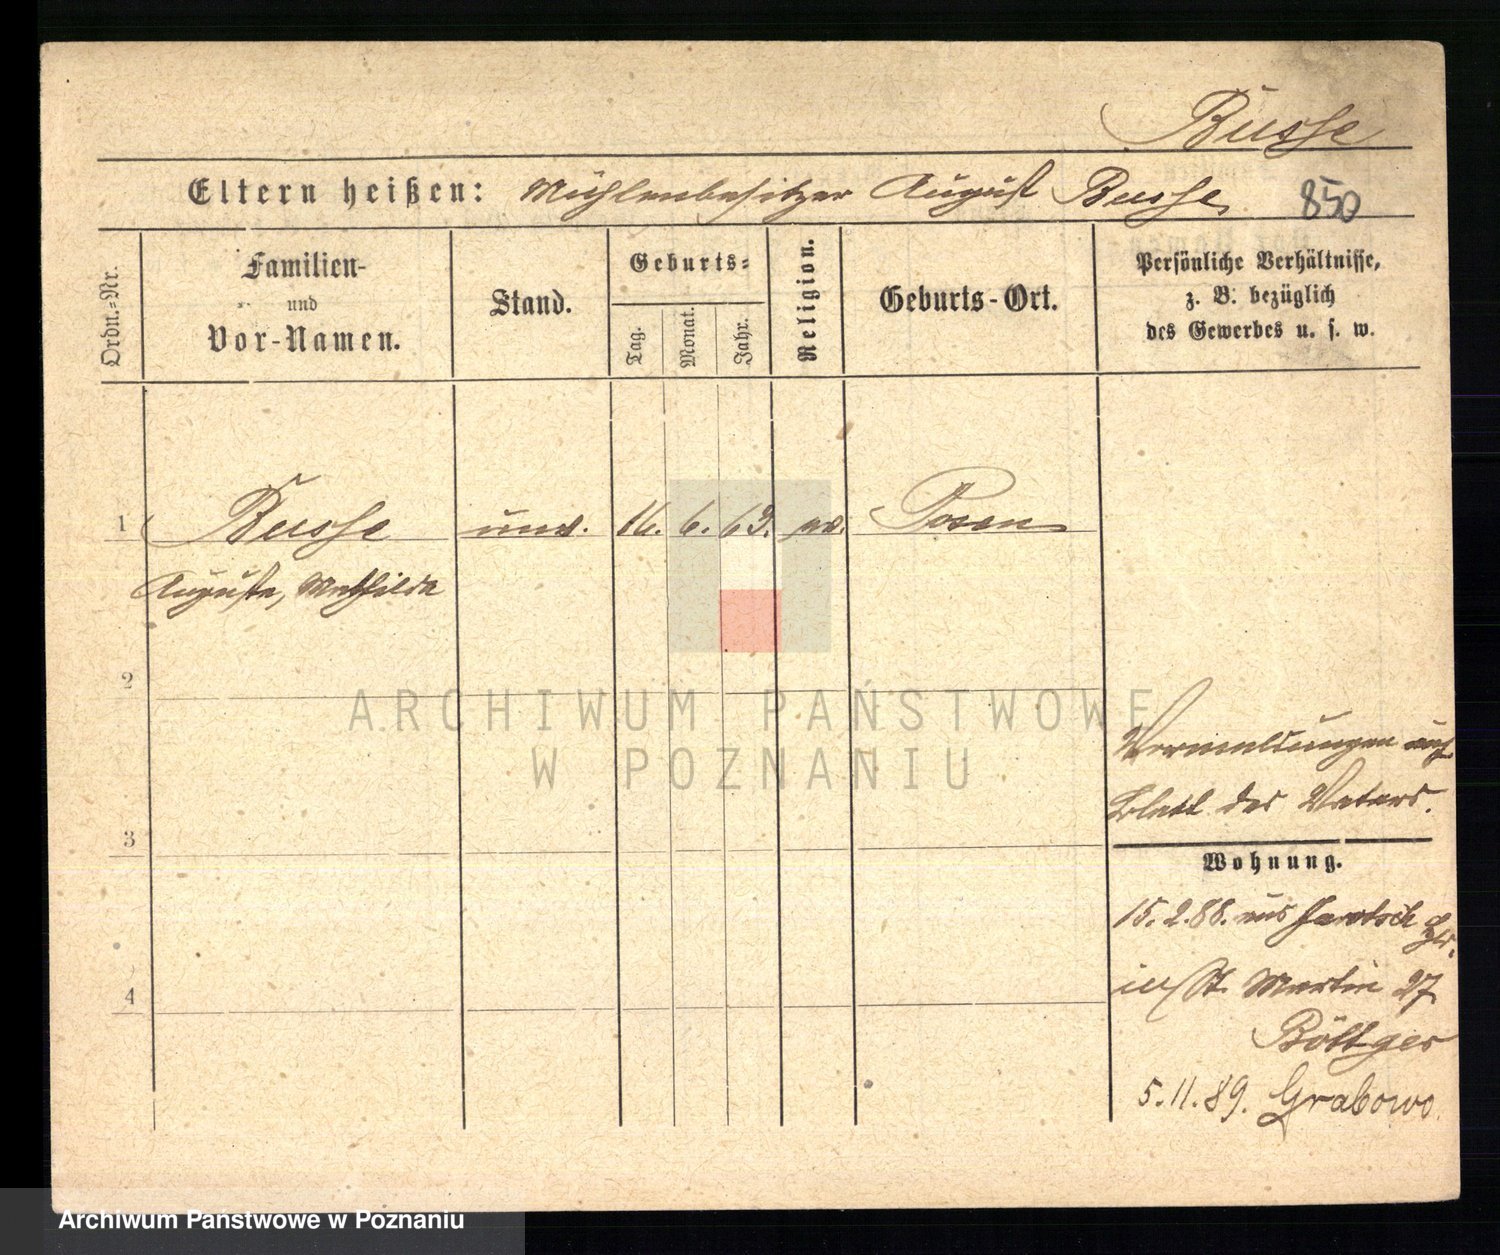 Busse
Eltern heißen: Mühlenbesitzer August Busse 850
Ordn.-Nr.
Familien-
und
Vor-Namen.
Stand.
Geburts=
Tag.
Monat.
Jahr.
Religion.
Geburts-Ort.
Persönliche Verhältnisse,
z. B. bezüglich
des Gewerbes u. s. w.
1 Busse unv. 16. 6. 63. ev. Posen
Auguste, Mathilde
2
3
4
Vermeldungen auf
Blatt des Vaters.
Wohnung.
15.2.88. aus
St. Martin 27
Böttger
5.11.89. Grabowo
ARCHIWUM PAŃSTWOWE
W POZNANIU
Archiwum Państwowe w Poznaniu